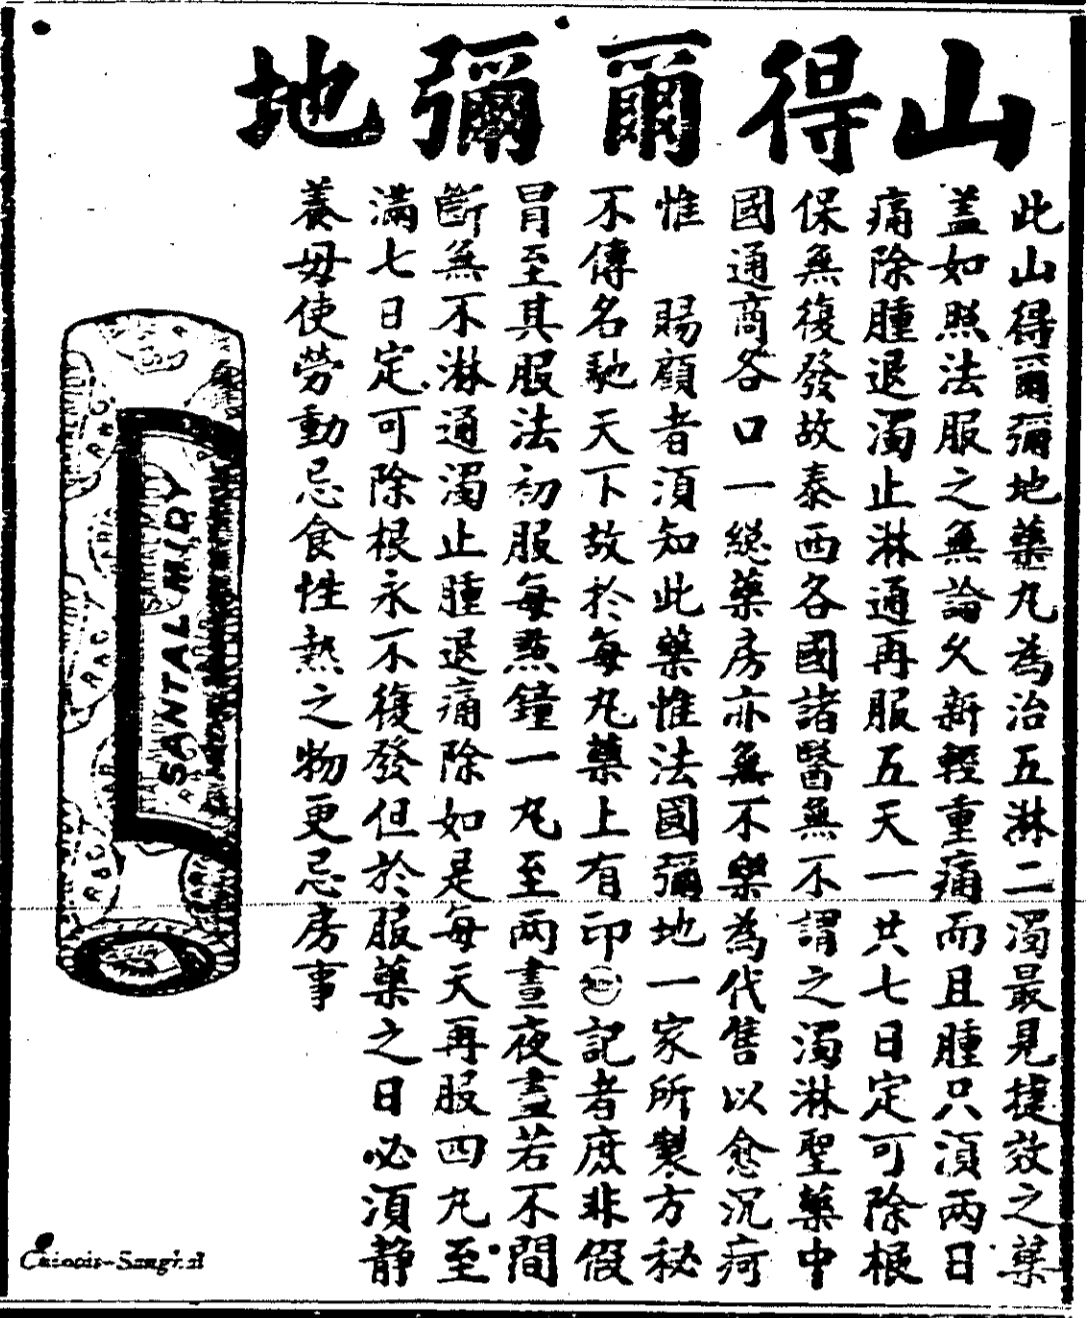 山得爾彌地
此山得爾彌地藥丸為治五淋二濁最見捷效之藥
蓋如照法服之無論久新輕重痛而且腫只須兩日
痛除腫退濁止淋通再服五天一共七日定可除根
保無復發故泰西各國諸醫無不謂之濁淋聖藥中
國通商各口一總藥房亦無不樂為代售以愈沉疴
惟 賜顧者須知此藥惟法國彌地一家所製方秘
不傳名馳天下故於每丸藥上有印記者庶非假
冒至其服法初服每點鐘一丸至兩晝夜晝若不間
斷無不淋通濁止腫退痛除如是每天再服四丸至
滿七日定可除根永不復發但於服藥之日必須静
養毋使勞動忌食性熱之物更忌房事
SANTAL MIDY